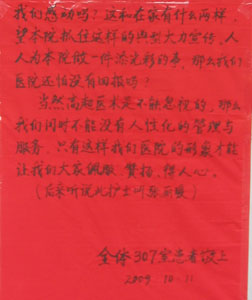 我们感动吗？这和在家有什么两样，
望本院抓住这样的典型大力宣传，人
人为本院做一件添光彩的事，那么我们
医院还怕没有回报吗？
当然高超医术是不能忽视的，那么
我们同时不能没有人性化的管理与
服务，只有这样我们医院的形象才能
让我们大家佩服、赞扬、得人心。
（后来听说此护士叫
全体307室患者敬上
2009.10.11